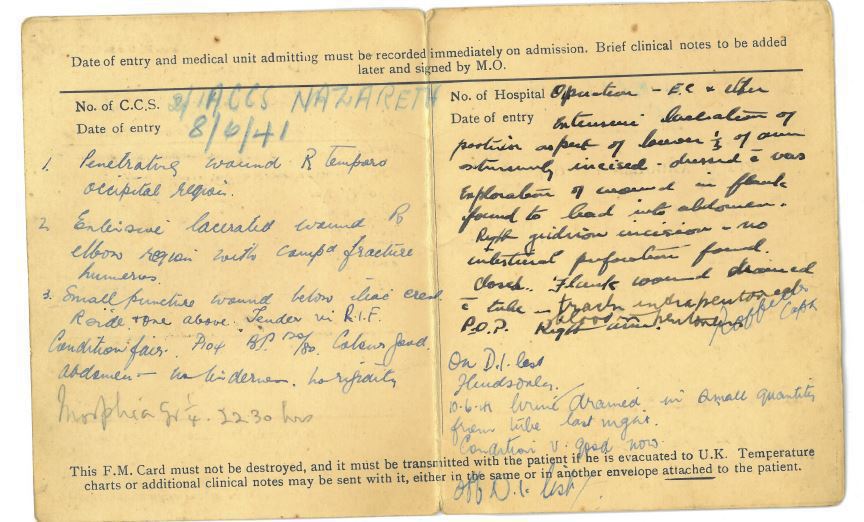 Date of entry and medical unit admitting must be recorded immediately on admission. Brief clinical notes to be added
later and signed by M.O.
No. of C.C.S. 2/1 ACCS NAZARETH
Date of entry 8/6/41
1. Penetrating wound R temporo
occipital region.
2. Extensive lacerated wound R
elbow region with compd fracture
humerus.
3. Small puncture wound below iliac crest
R side + one above. Tender in R.I.F.
Condition fair. BP 120/80. Colour good.
abdomen - no tenderness. no rigidity
Morphia Gr ¼. 2230 hrs
No. of Hospital Operation - E.C & ether
Date of entry Extensive laceration of
posterior aspect of lower ⅓ of arm
extensively incised - dressed c̄ vas
Exploration of wound in flank
found to lead into abdomen.
Right gridiron incision - no
intestinal perforation found.
Closed. Flank wound drained
c̄ tube - intraperitoneal
P.O.P. Right arm.
Capt
On D.I. list
10.6.41 Urine drained in small quantities
from tube last night.
Condition v. good now.
Off D.I. list
This F.M. Card must not be destroyed, and it must be transmitted with the patient if he is evacuated to U.K. Temperature
charts or additional clinical notes may be sent with it, either in the same or in another envelope attached to the patient.